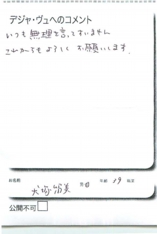 デジャ・ヴュへのコメント
いつも無理を言ってすいません
これからもよろしくお願いします。
お名前
年齢 19
公開不可